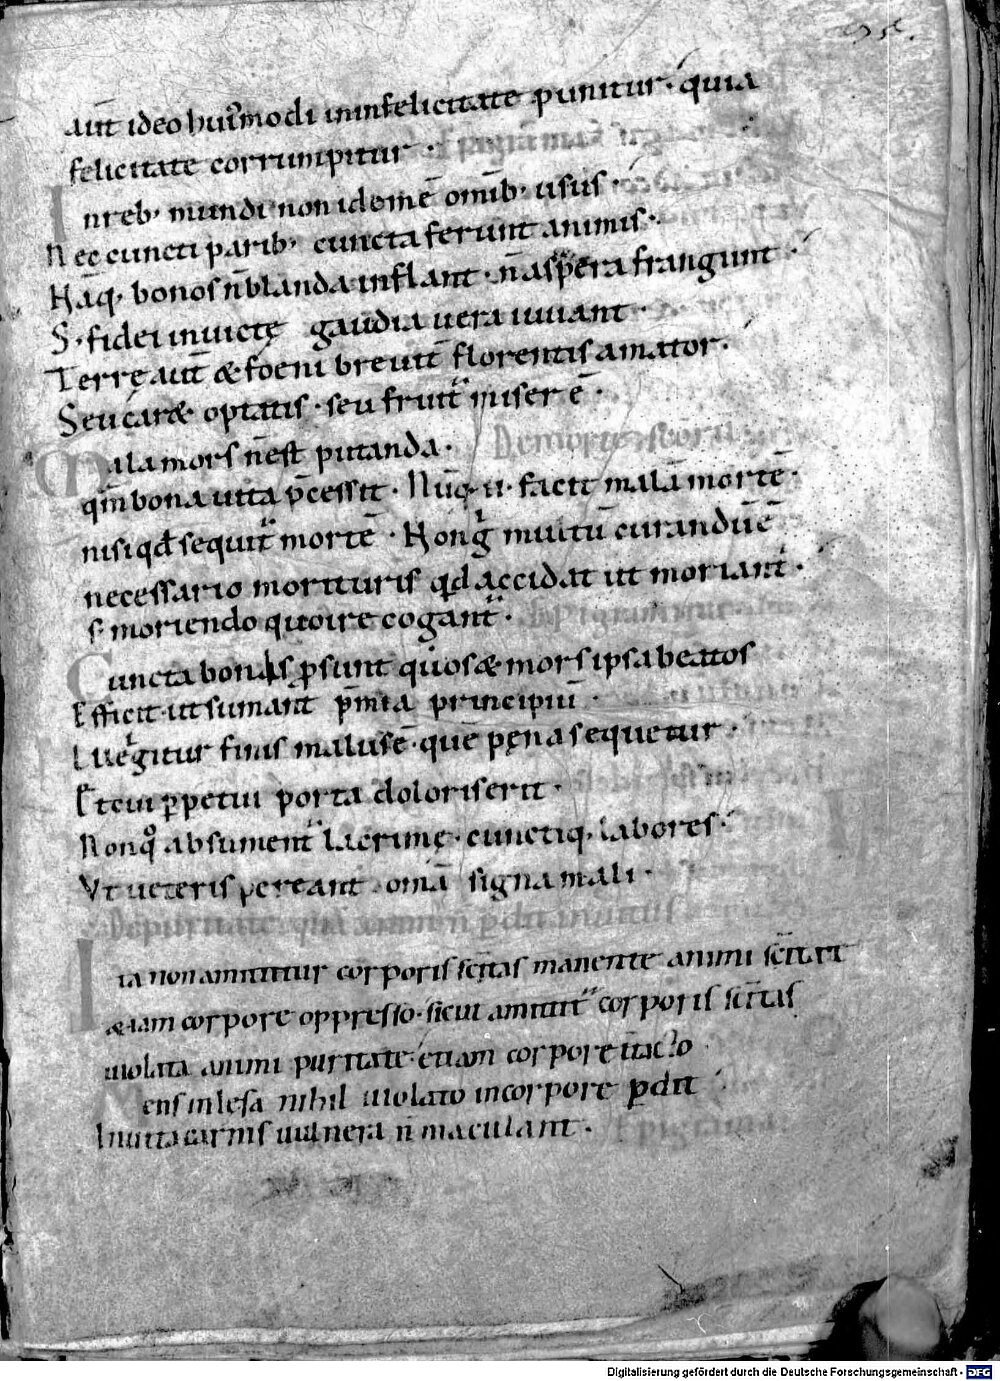 aut̄ ideo hui᷒modi ininfelicitate punitur · quia
felicitate corrumpitur · Epigrāma
In reb; mundi non idem ē omīb; usus ·
Nec cuncti parib; cuncta ferunt animis ·
Hāq; bonos n̄ blanda inflant · n̄ aspera frangunt ·
S; fidei inuictę gaudia uera iuuant ·
Terrę aut̄ & foeni breuit̄ florentis amator ·
Seu car& optatis · seu fruit᷑ miser ē ·
De morte
Mala mors n̄ est putanda ·
qm̄ bona uita p̄cessit · Nūq; n· facit malā mortē ·
nisi qd̄ sequit᷑ mortē · Non gͥ multū curandū ē
necessario morituris qd̄ accidat ut moriant᷑ ·
s; moriendo quo ire cogant᷑ ·
Epigramma
Cuncta bonis p̄sunt quos & mors ipsa beatos
Efficit · ut sumant p̄mia principiū ·
Luegͥtur finis malus ē · quē pęna sequetur ·
Et cui ꝑpetui porta doloris erit ·
Non qͦ absument᷑ lacrimę · cunctiq; labores ·
Vt ueteris pereant om̄a signa mali ·
De puritate qua animi n̄ ꝑdit inuitus
Ita non amittitur corporis sc̄itas manente animi sc̄itate
&iam corpore oppresso · sicut amittit᷑ corporis sc̄itas
uiolata animi puritate · etiam corpore ītacto ·
Epigrāma
Mens inlesa nihil uiolato in corpore ꝑdit
Inuita carnis uulnera n̄ maculant ·
Digitalisierung gefördert durch die Deutsche Forschungsgemeinschaft - DFG